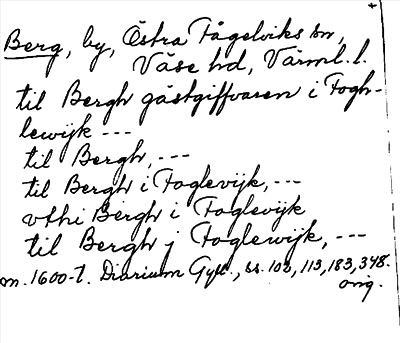 Berg, by, Östra Fågelviks sn,
Väse hd, Värml. l.
til Bergh gästgiffvaren i Fogh-
lewijk ---
til Bergh, ---
til Bergh i Foglevijk, ---
vthi Bergh i Foglevijk
til Bergh j Foglewijk, ---
m. 1600-t. Diarium Gyll., ss. 102, 113, 183, 348.
orig.